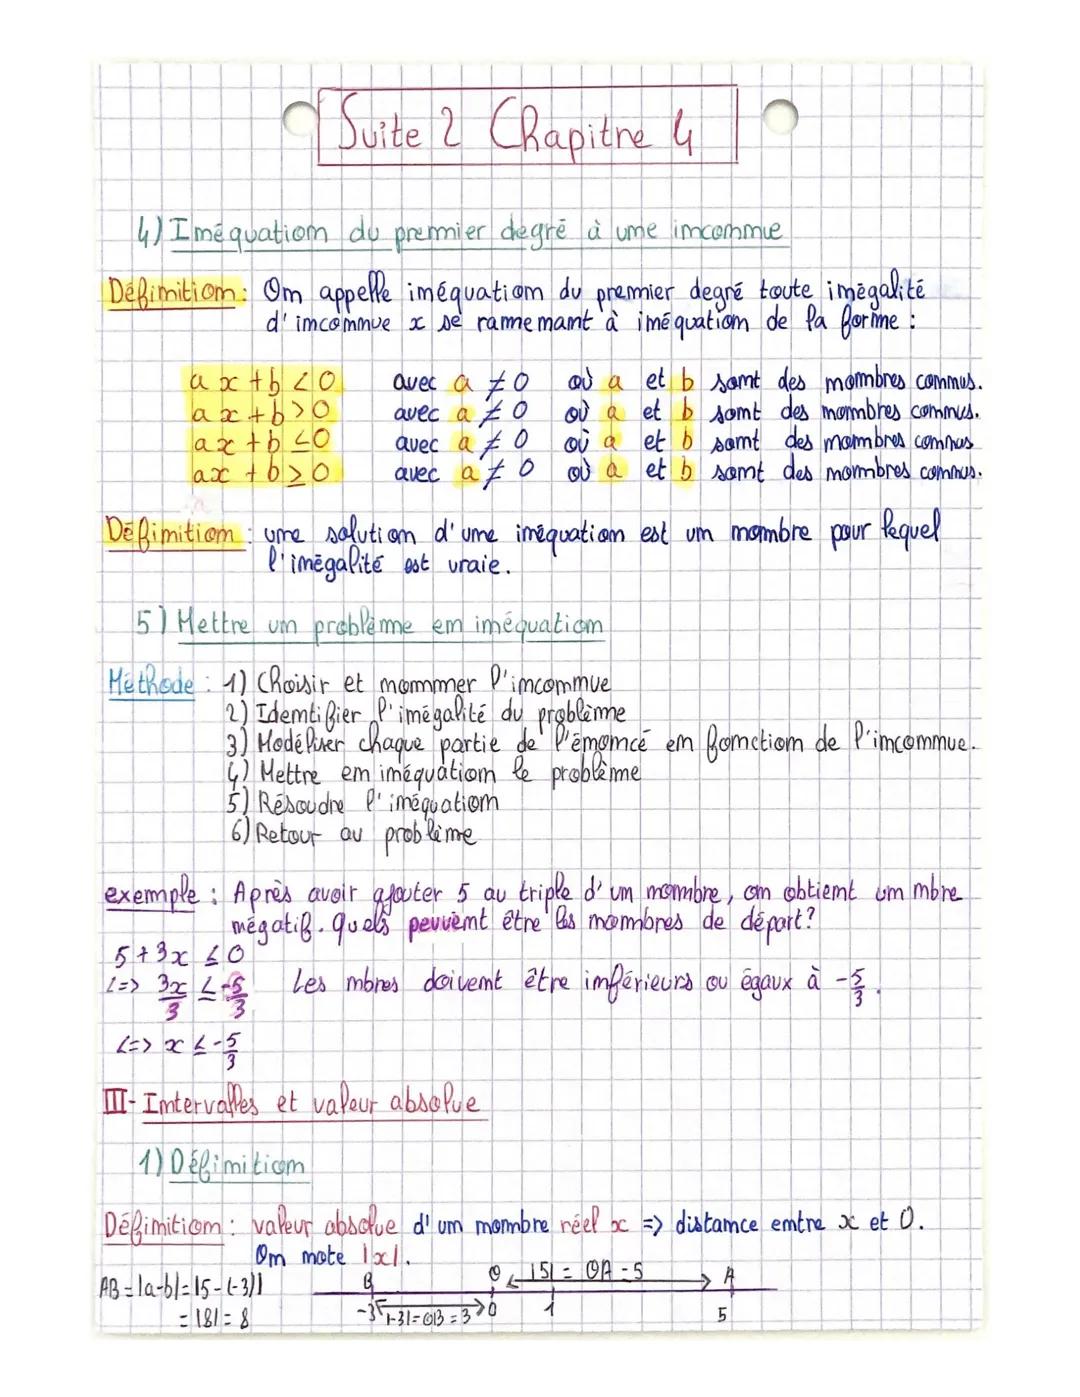 Suite 2 Chapitre 4
4) Inéquation du premier degré à une inconnue
Définition : On appelle inéquation du premier degré toute inégalité
d'inconnue x se ramenant à inéquation de la forme :
ax + b < 0 avec a ≠ 0 où a et b sont des nombres connus.
ax + b > 0 avec a ≠ 0 où a et b sont des nombres connus.
ax + b ≤ 0 avec a ≠ 0 où a et b sont des nombres connus
ax + b ≥ 0 avec a ≠ 0 où a et b sont des nombres connus.
Définition : une solution d'une inéquation est un nombre pour lequel
l'inégalité est vraie.
5) Mettre un problème en inéquation
Méthode : 1) Choisir et nommer l'inconnue
2) Identifier l'inégalité du problème
3) Modéliser chaque partie de l'énoncé en fonction de l'inconnue.
4) Mettre en inéquation le problème
5) Résoudre l'inéquation
6) Retour au problème
exemple : Après avoir ajouter 5 au triple d'un nombre, on obtient un nbre
négatif. Quels peuvent être les nombres de départ?
5 + 3x ≤ 0
<=> 3x/3 ≤ -5/3 Les nbres doivent être inférieurs ou égaux à -5/3.
<=> x ≤ -5/3
III- Intervalles et valeur absolue
1) Définition
Définition : valeur absolue d'un nombre réel x => distance entre x et 0.
On note |x|.
AB = |a-b| = |5-(-3)|
= |8| = 8
B O |5| = OA = 5 A
-3 |-3| = OB = 3 0 1 5